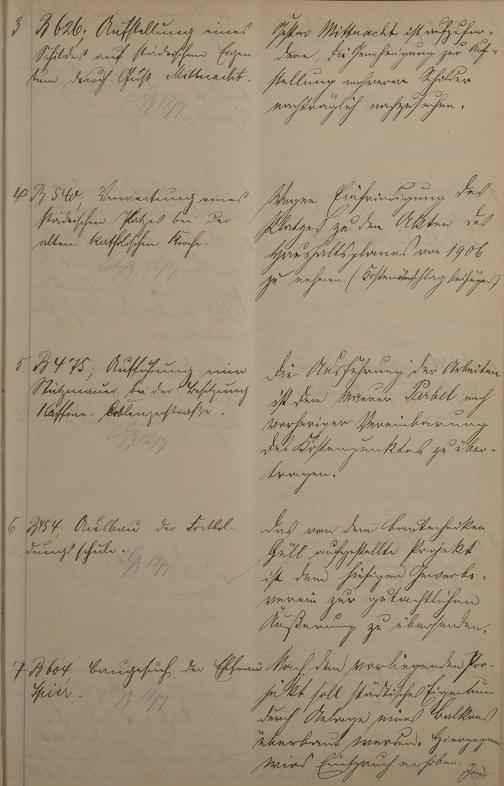 3 B 626. Aufstellung eines
Schildes auf städtischem Eigen-
tum durch Gust. Mittnacht.
Gustav Mittnacht ist aufzufor-
dern, die Genehmigung zur Auf-
stellung mehrerer Schilder
nachträglich nachzusuchen.
4 B 540, Verwertung eines
städtischen Platzes bei der
alten katholischen Kirche.
Wegen Einfriedigung des
Platzes zu den Akten des
Haushaltsplanes von 1906
zu nehmen (Kostenanschlag beifügen)
5 B 475, Aufführung einer
Stützmauer bei der Besitzung
Coblenzerstraße.
Die Ausführung der Arbeiten
ist dem Maurer nach
vorheriger Vereinbarung
des Kostenpunktes zu über-
tragen.
6 B 54, Ausbau der Fortbil-
dungsschule.
Das von dem Bautechniker
Güll aufgestellte Projekt
ist dem hiesigen Gewerbe-
verein zur gutachtlichen
Äußerung zu übersenden.
7 B 604, Baugesuch der Ehefrau
Spier.
Nach dem vorliegenden Pro-
jekt soll städtisches Eigentum
durch Anlage eines Balkons
überbaut werden. Hiergegen
wird Einspruch erhoben.